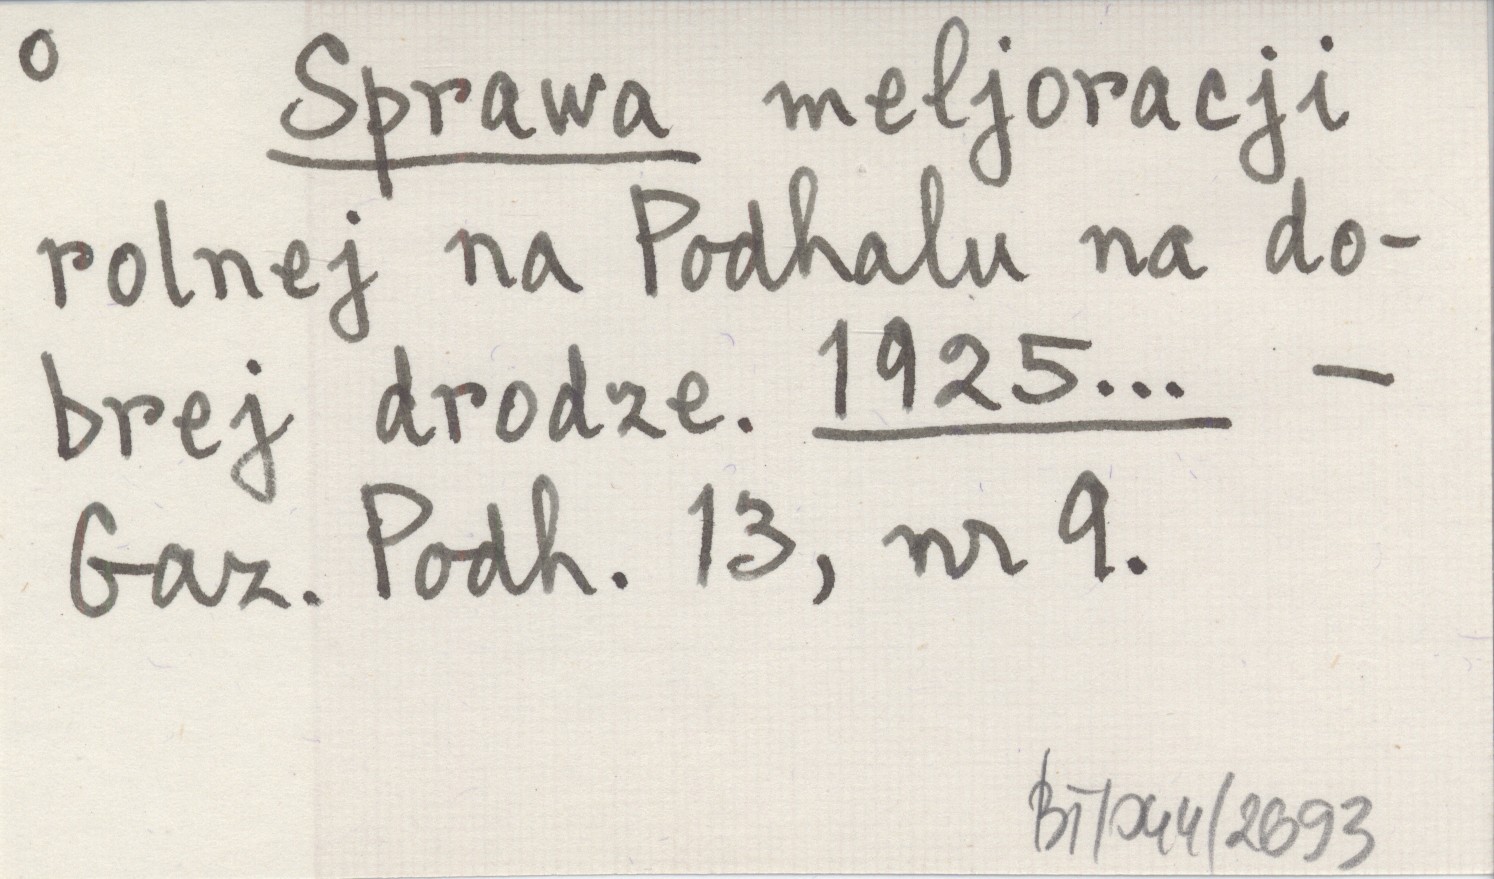 o
Sprawa meljoracji
rolnej na Podhalu na do-
brej drodze. 1925... —
Gaz. Podh. 13, nr 9.